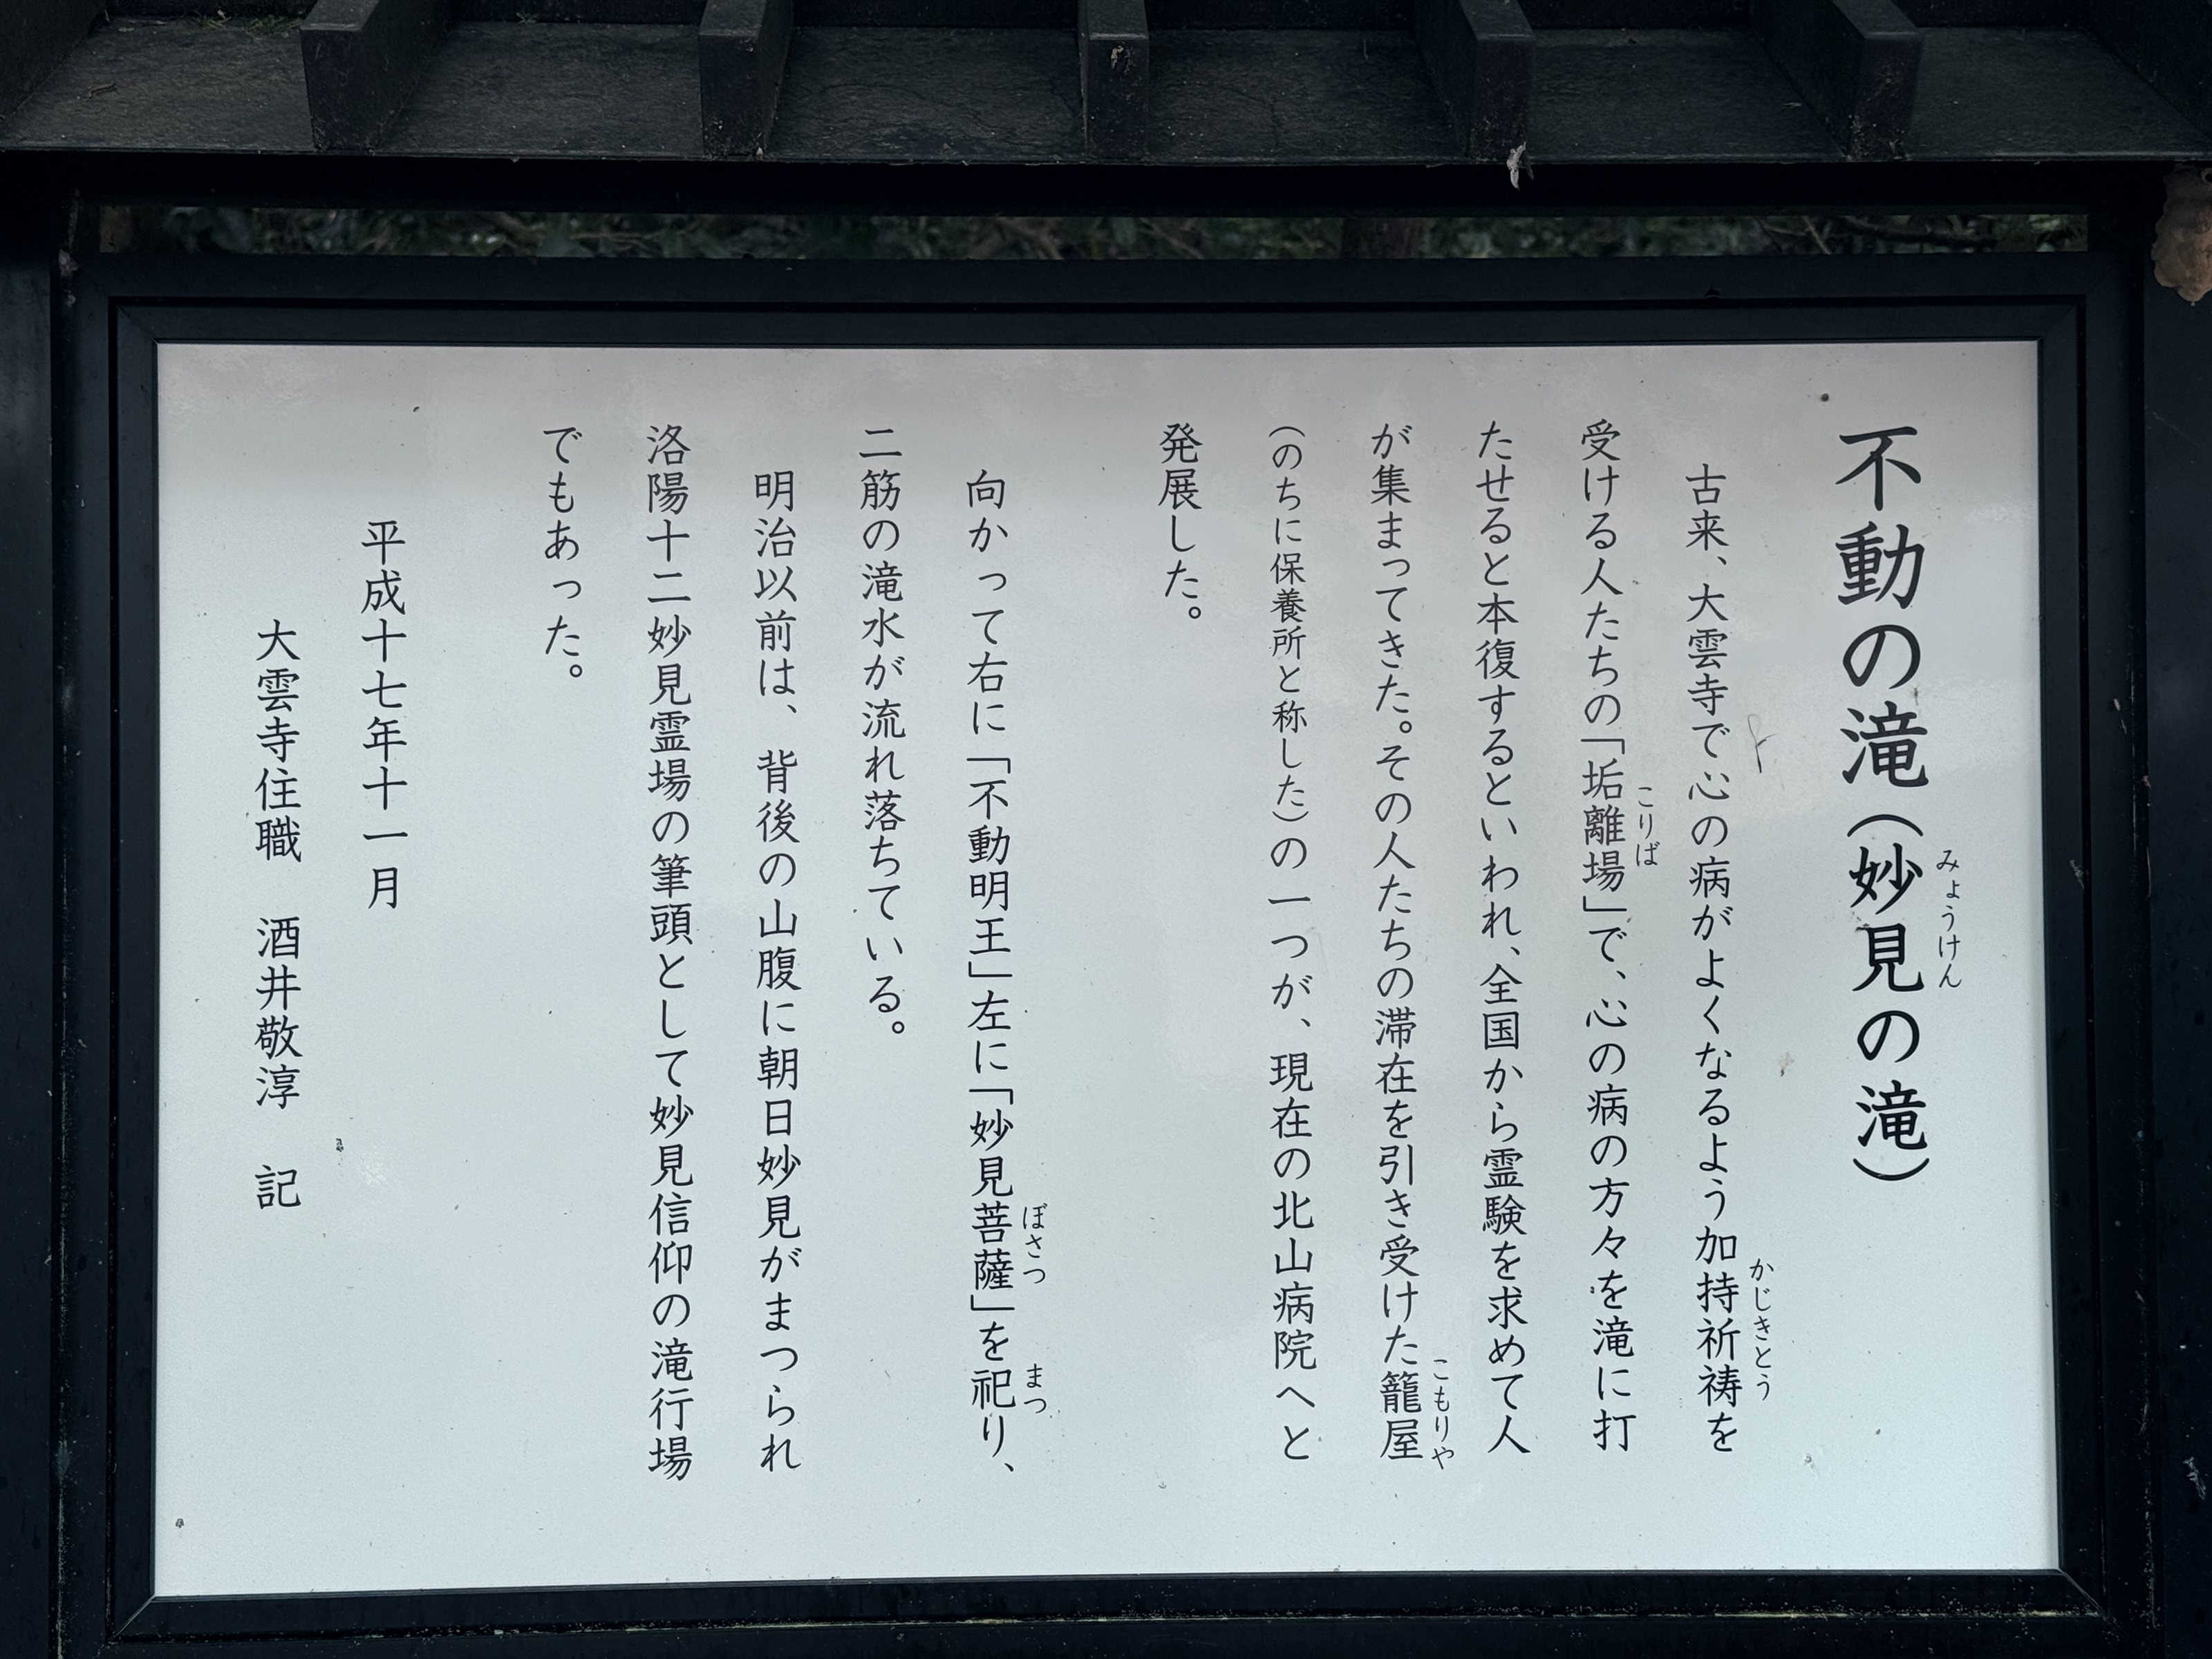 不動の滝（妙見の滝）
みょうけん
古来、大雲寺で心の病がよくなるよう加持祈祷を
かじきとう
受ける人たちの「垢離場」で、心の病の方々を滝に打
こりば
たせると本復するといわれ、全国から霊験を求めて人
が集まってきた。その人たちの滞在を引き受けた籠屋
こもりや
（のちに保養所と称した）の一つが、現在の北山病院へと
発展した。
向かって右に「不動明王」左に「妙見菩薩」を祀り、
ぼさつ
まつ
二筋の滝水が流れ落ちている。
明治以前は、背後の山腹に朝日妙見がまつられ
洛陽十二妙見霊場の筆頭として妙見信仰の滝行場
でもあった。
平成十七年十一月
大雲寺住職　酒井敬淳　記